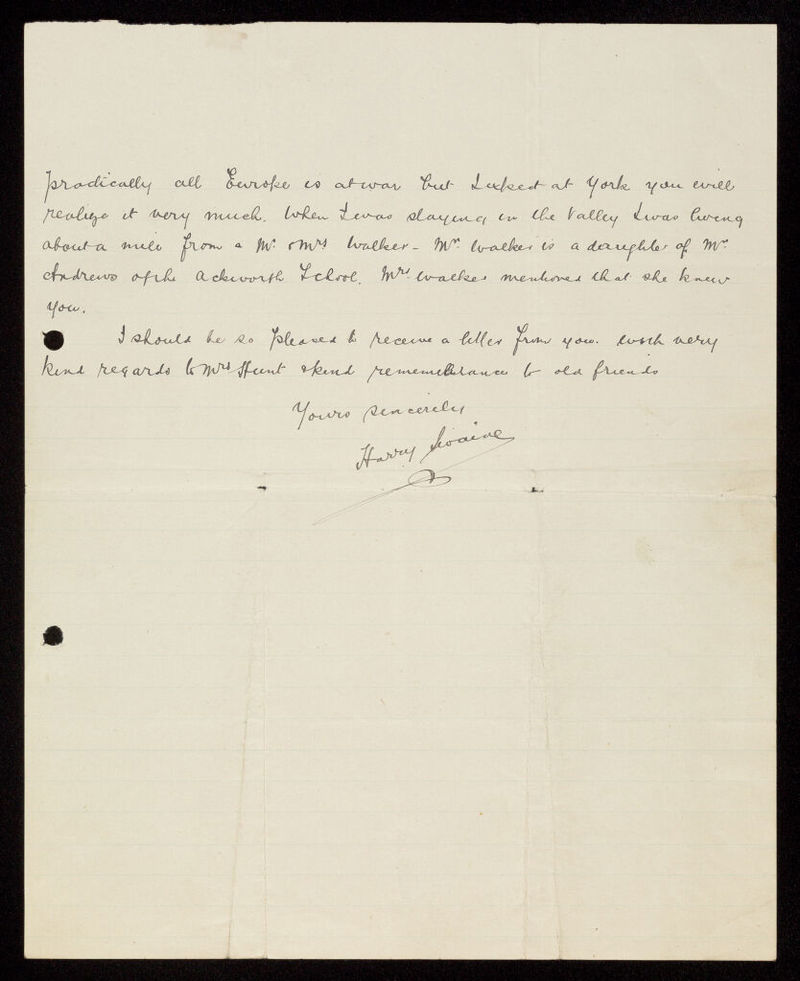 practically all Europe is at war but I expect at York you will
realize it very much. When I was staying in the Valley I was living
about a mile from a Mr. & Mrs Walker - Mrs. Walker is a daughter of Mr.
Andrews of the Ackworth School. Mrs. Walker mentioned that she knew
you.
I should be so pleased to receive a letter from you. with very
kind regards to Mrs Hunt & kind remembrance to old friends
Yours sincerely
Harry Swaine